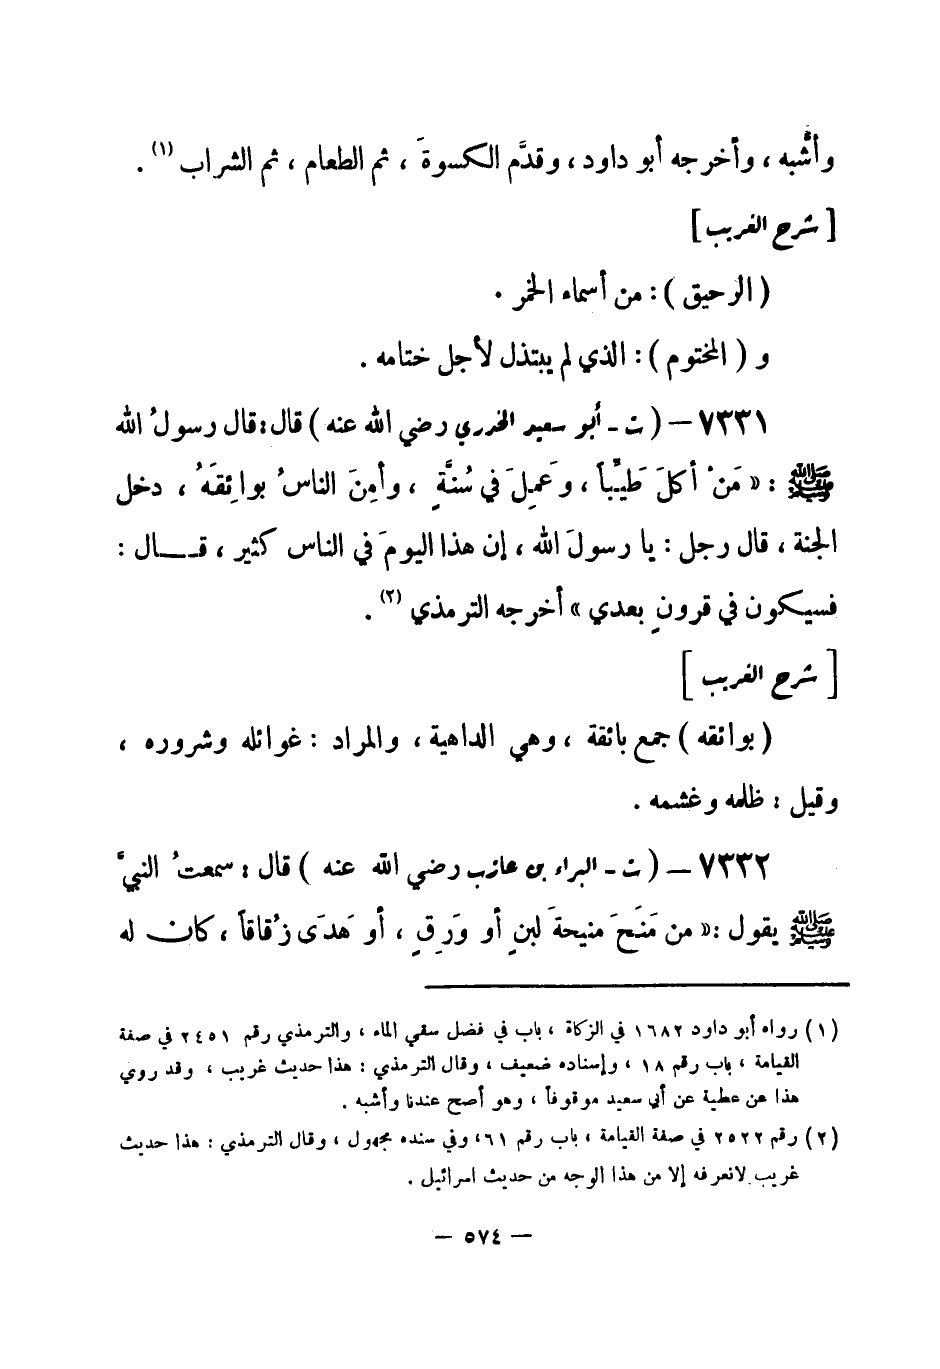 وأشْبه ، وأخرجه أبو داود ، وقدَّم الكسوةَ ، ثم الطعام ، ثم الشراب (١) .
[ شرح الغريب ]
( الرحيق ) : من أسماء الخمر .
و ( المختوم ) : الذي لم يبتذل لأجل ختامه .
٧٣٣١ – ( ت - أبو سعيد الخدري رضي الله عنه ) قال : قال رسولُ الله
ﷺ : « مَنْ أكلَ طَيِّباً ، وَعَمِلَ في سُنَّةٍ ، وأمِنَ الناسُ بوائِقَهُ ، دخل
الجنة ، قال رجل : يا رسولَ الله ، إن هذا اليومَ في الناس كثير ، قـــال :
فسيكون في قرونٍ بعدي » أخرجه الترمذي (٢) .
[ شرح الغريب ]
( بوائقه ) جمع بائقة ، وهي الداهية ، والمراد : غوائله وشروره ،
وقيل : ظلمه وغشمه .
٧٣٣٢ – ( ت - البراء بن عازب رضي الله عنه ) قال : سمعتُ النبيَّ
ﷺ يقول : « من مَنَحَ مَنيحةَ لبنٍ أو وَرِقٍ ، أو هَدَى زُقاقاً ، كان له
(١) رواه أبو داود ١٦٨٢ في الزكاة ، باب في فضل سقي الماء ، والترمذي رقم ٢٤٥١ في صفة
القيامة ، باب رقم ١٨ ، وإسناده ضعيف ، وقال الترمذي : هذا حديث غريب ، وقد روي
هذا عن عطية عن أبي سعيد موقوفاً ، وهو أصح عندنا وأشبه .
(٢) رقم ٢٥٢٢ في صفة القيامة ، باب رقم ٦١ ، وفي سنده مجهول ، وقال الترمذي : هذا حديث
غريب لانعرفه إلا من هذا الوجه من حديث اسرائيل .
— ٥٧٤ —